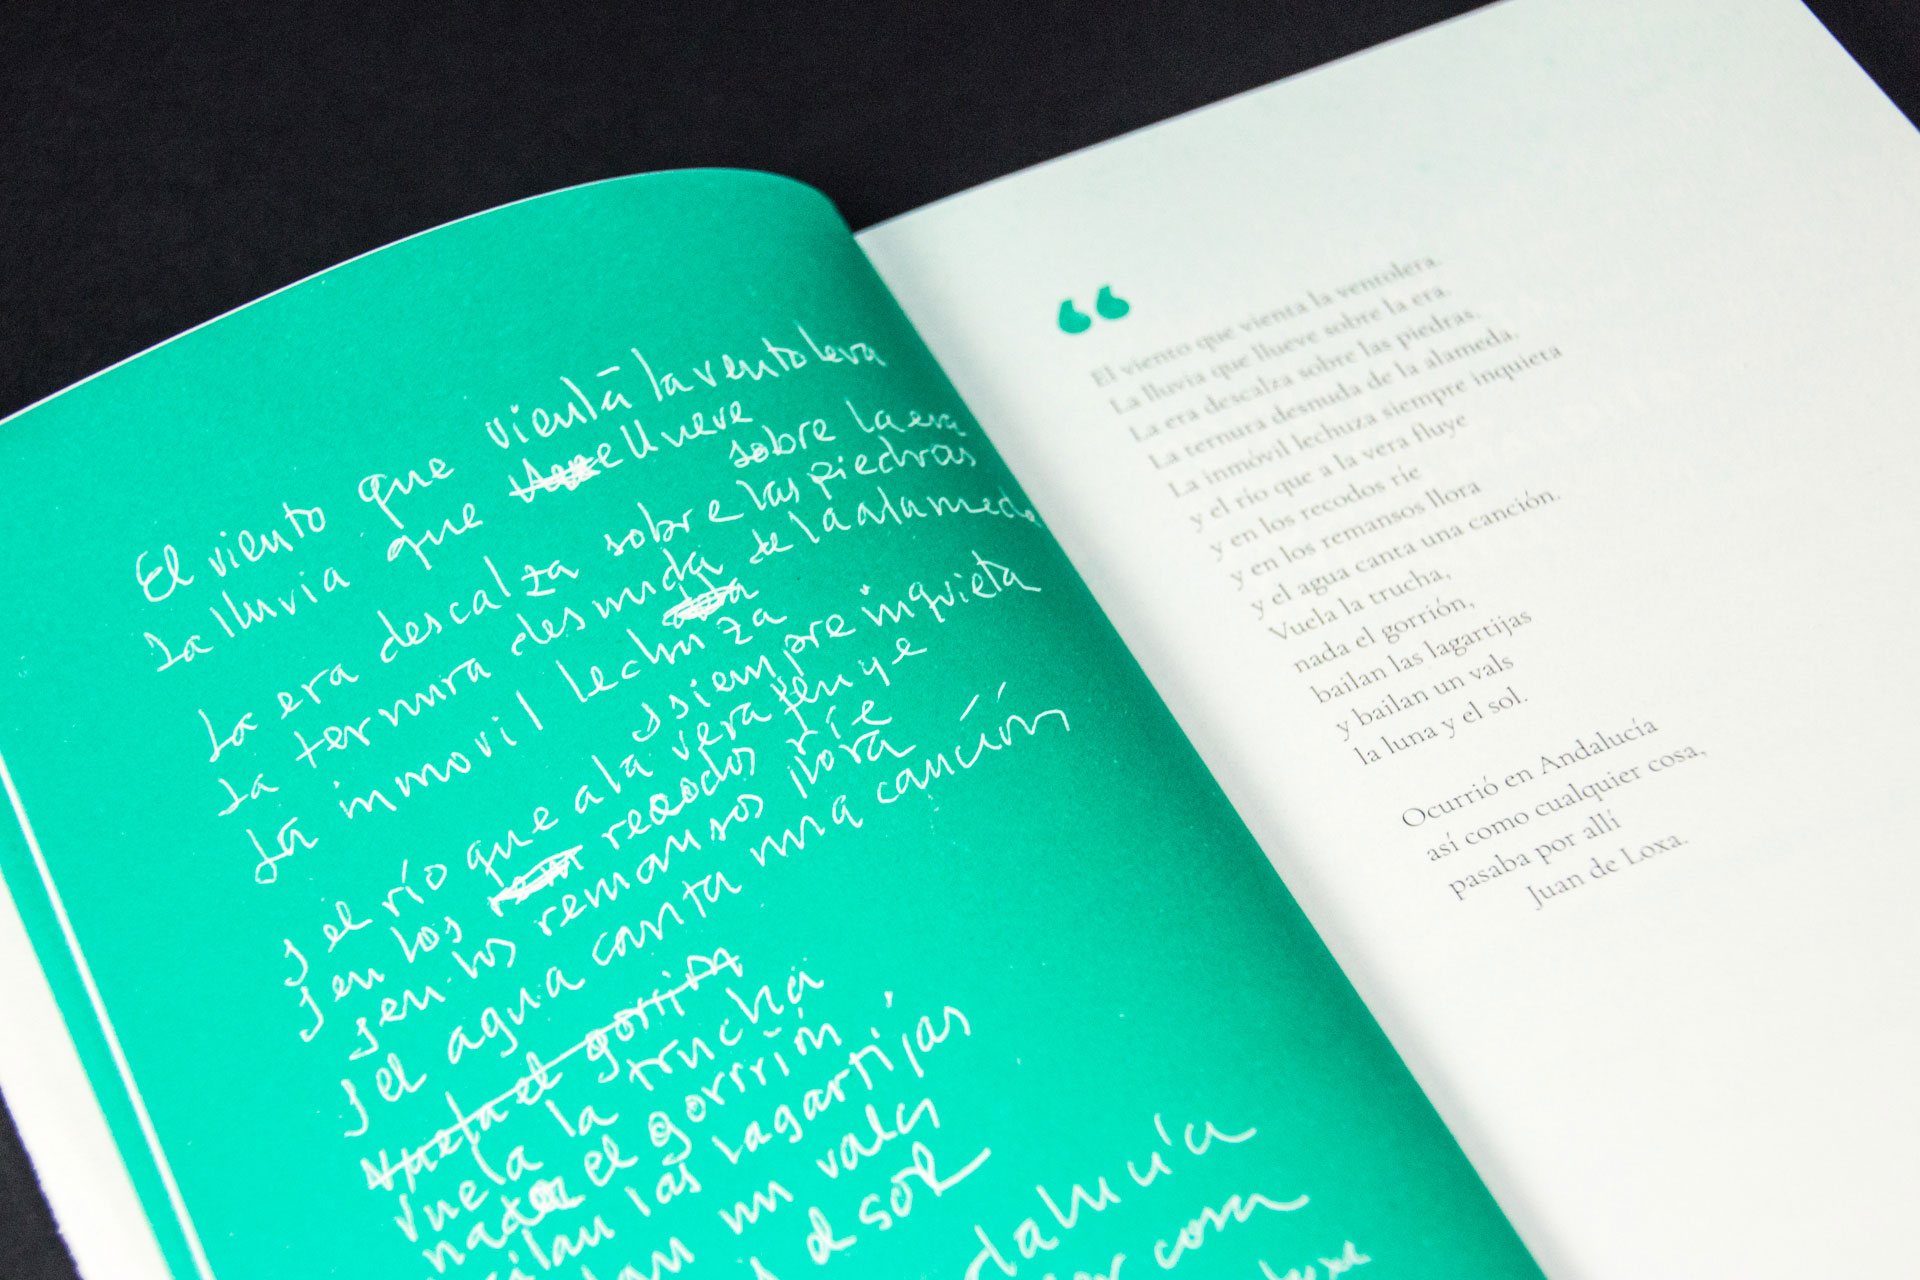 El viento que vientā la ventolera
La lluvia que llueve sobre la era
La era descalza sobre las piedras
La ternura desnuda de la alameda
La inmovil lechuza
siempre inquieta
y el río que a la vera fluye
y en los recodos ríe
y en los remansos llora
y el agua canta una canción
Vuela el gorrión
vuela la trucha
nada el gorrión
bailan las lagartijas
bailan un vals
y el sol
dalucía
cosa
Loxa
“
El viento que vienta la ventolera.
La lluvia que llueve sobre la era.
La era descalza sobre las piedras.
La ternura desnuda de la alameda.
La inmóvil lechuza siempre inquieta
y el río que a la vera fluye
y en los recodos ríe
y en los remansos llora
y el agua canta una canción.
Vuela la trucha,
nada el gorrión,
bailan las lagartijas
y bailan un vals
la luna y el sol.
Ocurrió en Andalucía
así como cualquier cosa,
pasaba por allí
Juan de Loxa.